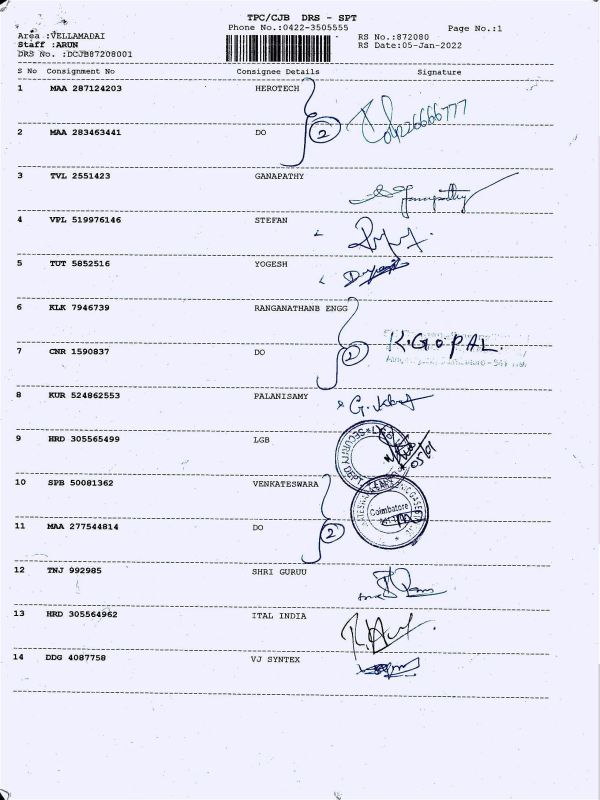 TPC/CJB DRS - SPT
Phone No.:0422-3505555 Page No.:1
Area :VELLAMADAI RS No.:872080
Staff :ARUN RS Date:05-Jan-2022
DRS No. :DCJB87208001
S No Consignment No Consignee Details Signature
1 MAA 287124203 HEROTECH
2 9826666777
2 MAA 283463441 DO
3 TVL 2551423 GANAPATHY
4 VPL 519976146 STEFAN
5 TUT 5852516 YOGESH
6 KLK 7946739 RANGANATHANB ENGG
K.GOPAL.
7 CNR 1590837 DO 2
8 KUR 524862553 PALANISAMY
9 HRD 305565499 LGB
SECURITY DEPT.
05/01
10 SPB 50081362 VENKATESWARA
Coimbatore
11 MAA 277544814 DO 2
12 TNJ 992985 SHRI GURUU
13 HRD 305564962 ITAL INDIA
14 DDG 4087758 VJ SYNTEX